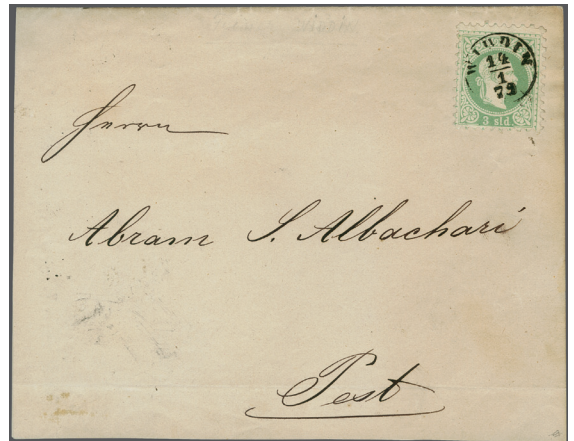 WIDDIN
14
1
79
3 sld.
Herrn
Abram S. Albachari
Pest